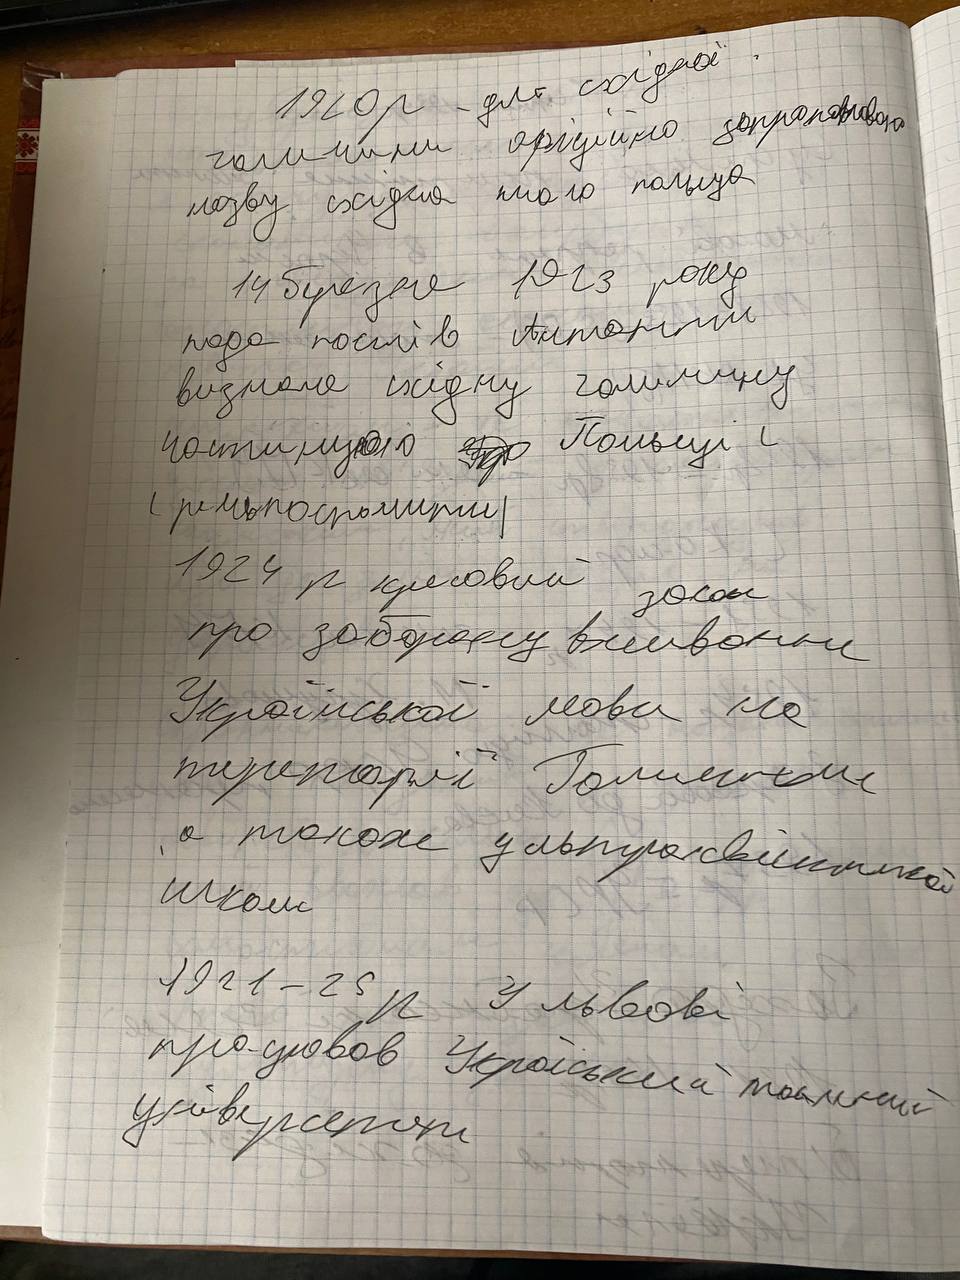 1920р - для східної
галичини офіційно запропоновано
назву східна мала польща
14 березня 1923 року
рада послів Антанти
визнала східну галичину
частиною Польщі (
(речьпосполити)
1924 р кресовий закон
про заборону вживання
Української мови на
території Галичини
, а також
школи
1921-25 р У львові
працював Український таємний
університет